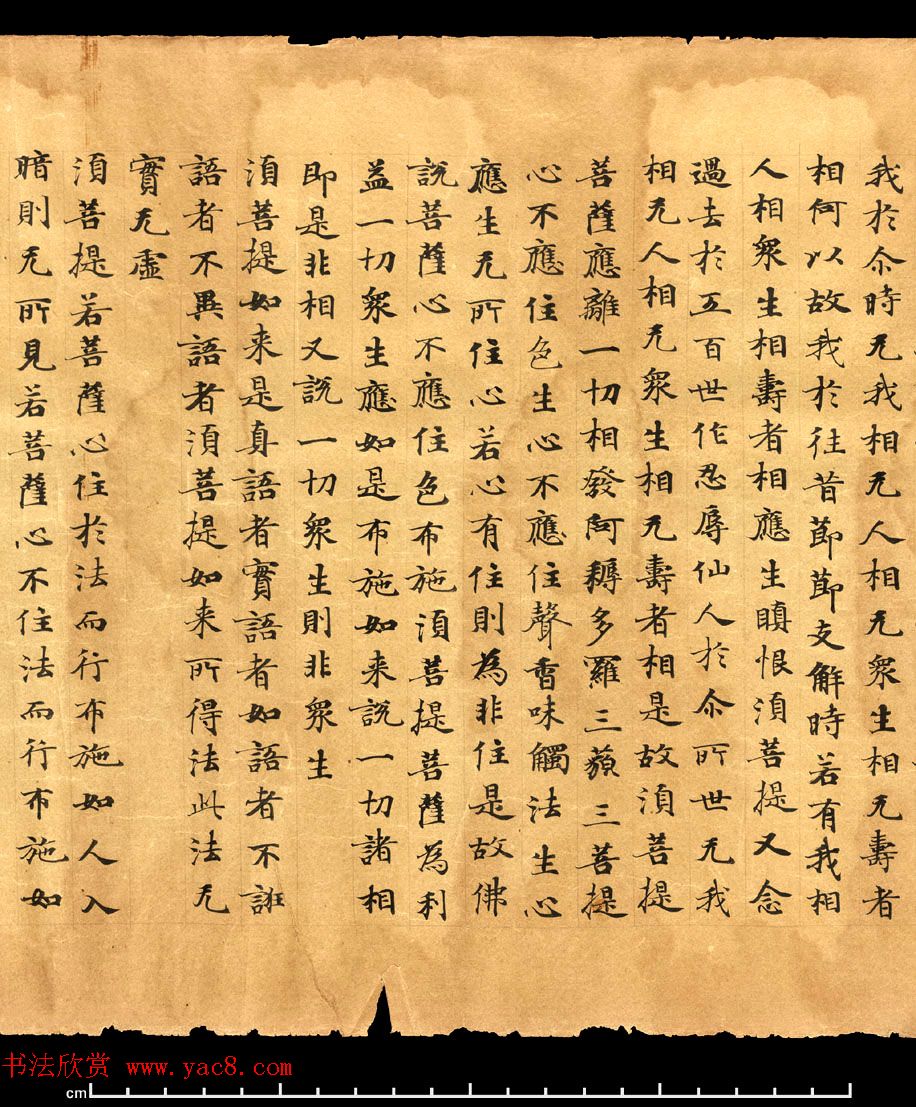 我於尒時无我相无人相无衆生相无壽者
相何以故我於往昔節節支解時若有我相
人相衆生相壽者相應生瞋恨湏菩提又念
過去於五百世作忍辱仙人於尒所世无我
相无人相无衆生相无壽者相是故湏菩提
菩薩應離一切相發阿耨多羅三藐三菩提
心不應住色生心不應住聲香味觸法生心
應生无所住心若心有住則為非住是故佛
說菩薩心不應住色布施湏菩提菩薩為利
益一切衆生應如是布施如来說一切諸相
即是非相又說一切衆生則非衆生
湏菩提如来是真語者實語者如語者不誑
語者不異語者湏菩提如来所得法此法无
實无虛
湏菩提若菩薩心住於法而行布施如人入
暗則无所見若菩薩心不住法而行布施如
书法欣赏 www.yac8.com
cm